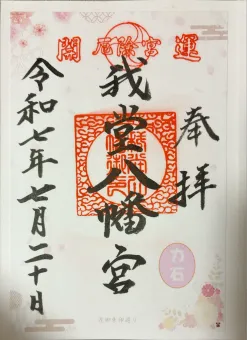 開運
厄除宮
奉拝
我堂八幡宮
令和七年七月二十日
力石